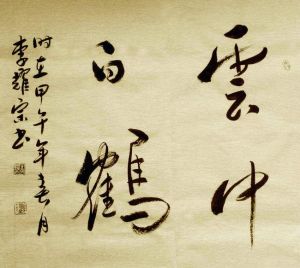 雲中
白鶴
時在甲午年春月
李耀宗書